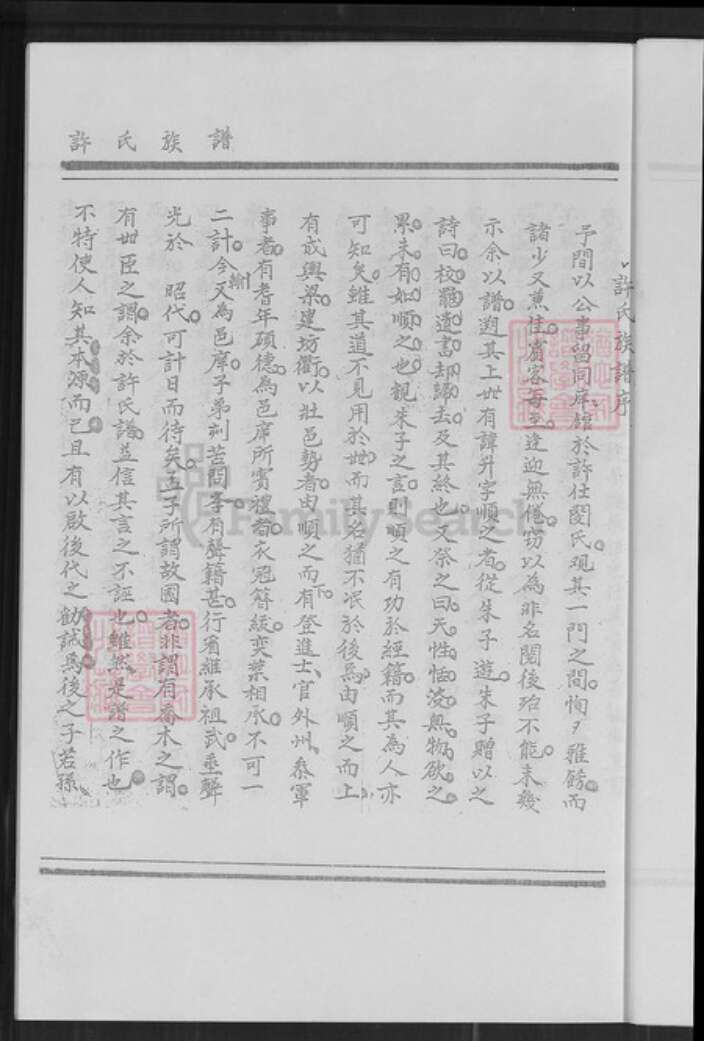 許氏族譜
許氏族譜序
予間以公事留同庠館於許仕閿氏觀其一門之間恂々雅飭而
諸少又熏佳賓客每至逢迎無倦竊以為非名閥後殆不能未幾
示余以譜遡其上世有諱升字順之者從朱子遊朱子贈以之
詩曰校罷遺書却歸去及其終也又祭之曰天性恬淡無物欲之
累未有如順之也觀朱子之言則順之有功於經籍而其為人亦
可知矣雖其道不見用於世而其名猶不泯於後焉由順之而上
有成興梁建坊衢以壯邑勢者由順之而下有登進士官外州叅軍
事者有耆年碩德為邑庠所賓禮者衣冠簪緌奕葉相承不可一
二計今又為邑庠子弟刻苦問學有聲籍甚行看維承祖武垂聲
光於 昭代可計日而待矣孟子所謂故國者非謂有喬木之謂
有世臣之謂余於許氏譜益信其言之不誣也雖然是譜之作也
不特使人知其本源而已且有以啟後代之勸誡焉後之子若孫
FamilySearch